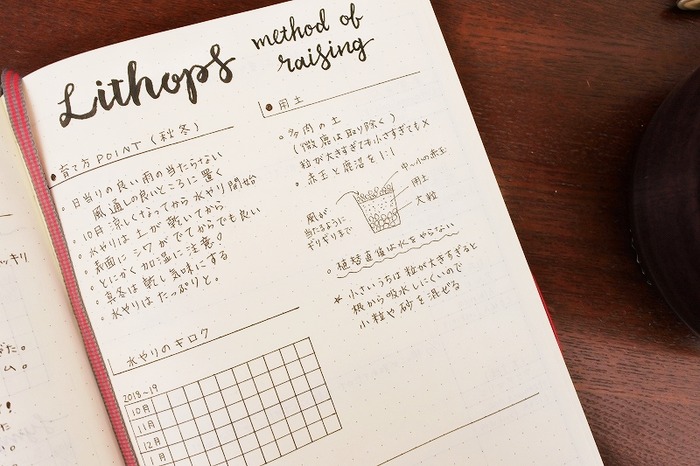 Lithops
method of
raising
●育て方POINT(秋冬)
○日当りの良い雨の当たらない
風通しの良いところに置く
○10月 涼しくなってから水やり開始
○水やりは土が乾いてから
表面にシワがでてからでも良い
○とにかく加湿に注意!
○真冬は乾し気味にする
○水やりはたっぷりと。
水やりのキロク
2018~19
10月
11月
12月
1月
●用土
○多肉の土
(微塵は取り除く)
粒が大きすぎても小さすぎても×
○赤玉と鹿沼を1:1
中~小の赤玉
用土
大粒
風が
当たるように
ギリギリまで
○植替直後は水をやらない
★小さいうちは粒が大きすぎると
根から吸水しにくいので
小粒や砂を混ぜる
ッキリ
だ。
ム。
!